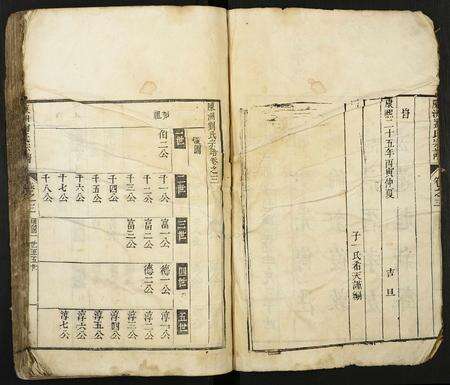 旹
康熙二十五年丙寅仲夏 吉旦
氏希天謹編
氏宗譜卷之三
一世
伯二公
二世
千一公
千二公
千三公
千四公
千五公
千六公
千七公
千八公
三世
富一公
富二公
富三公
四世
德一公
德二公
五世
淳一公
淳二公
淳三公
淳四公
淳五公
淳六公
淳七公